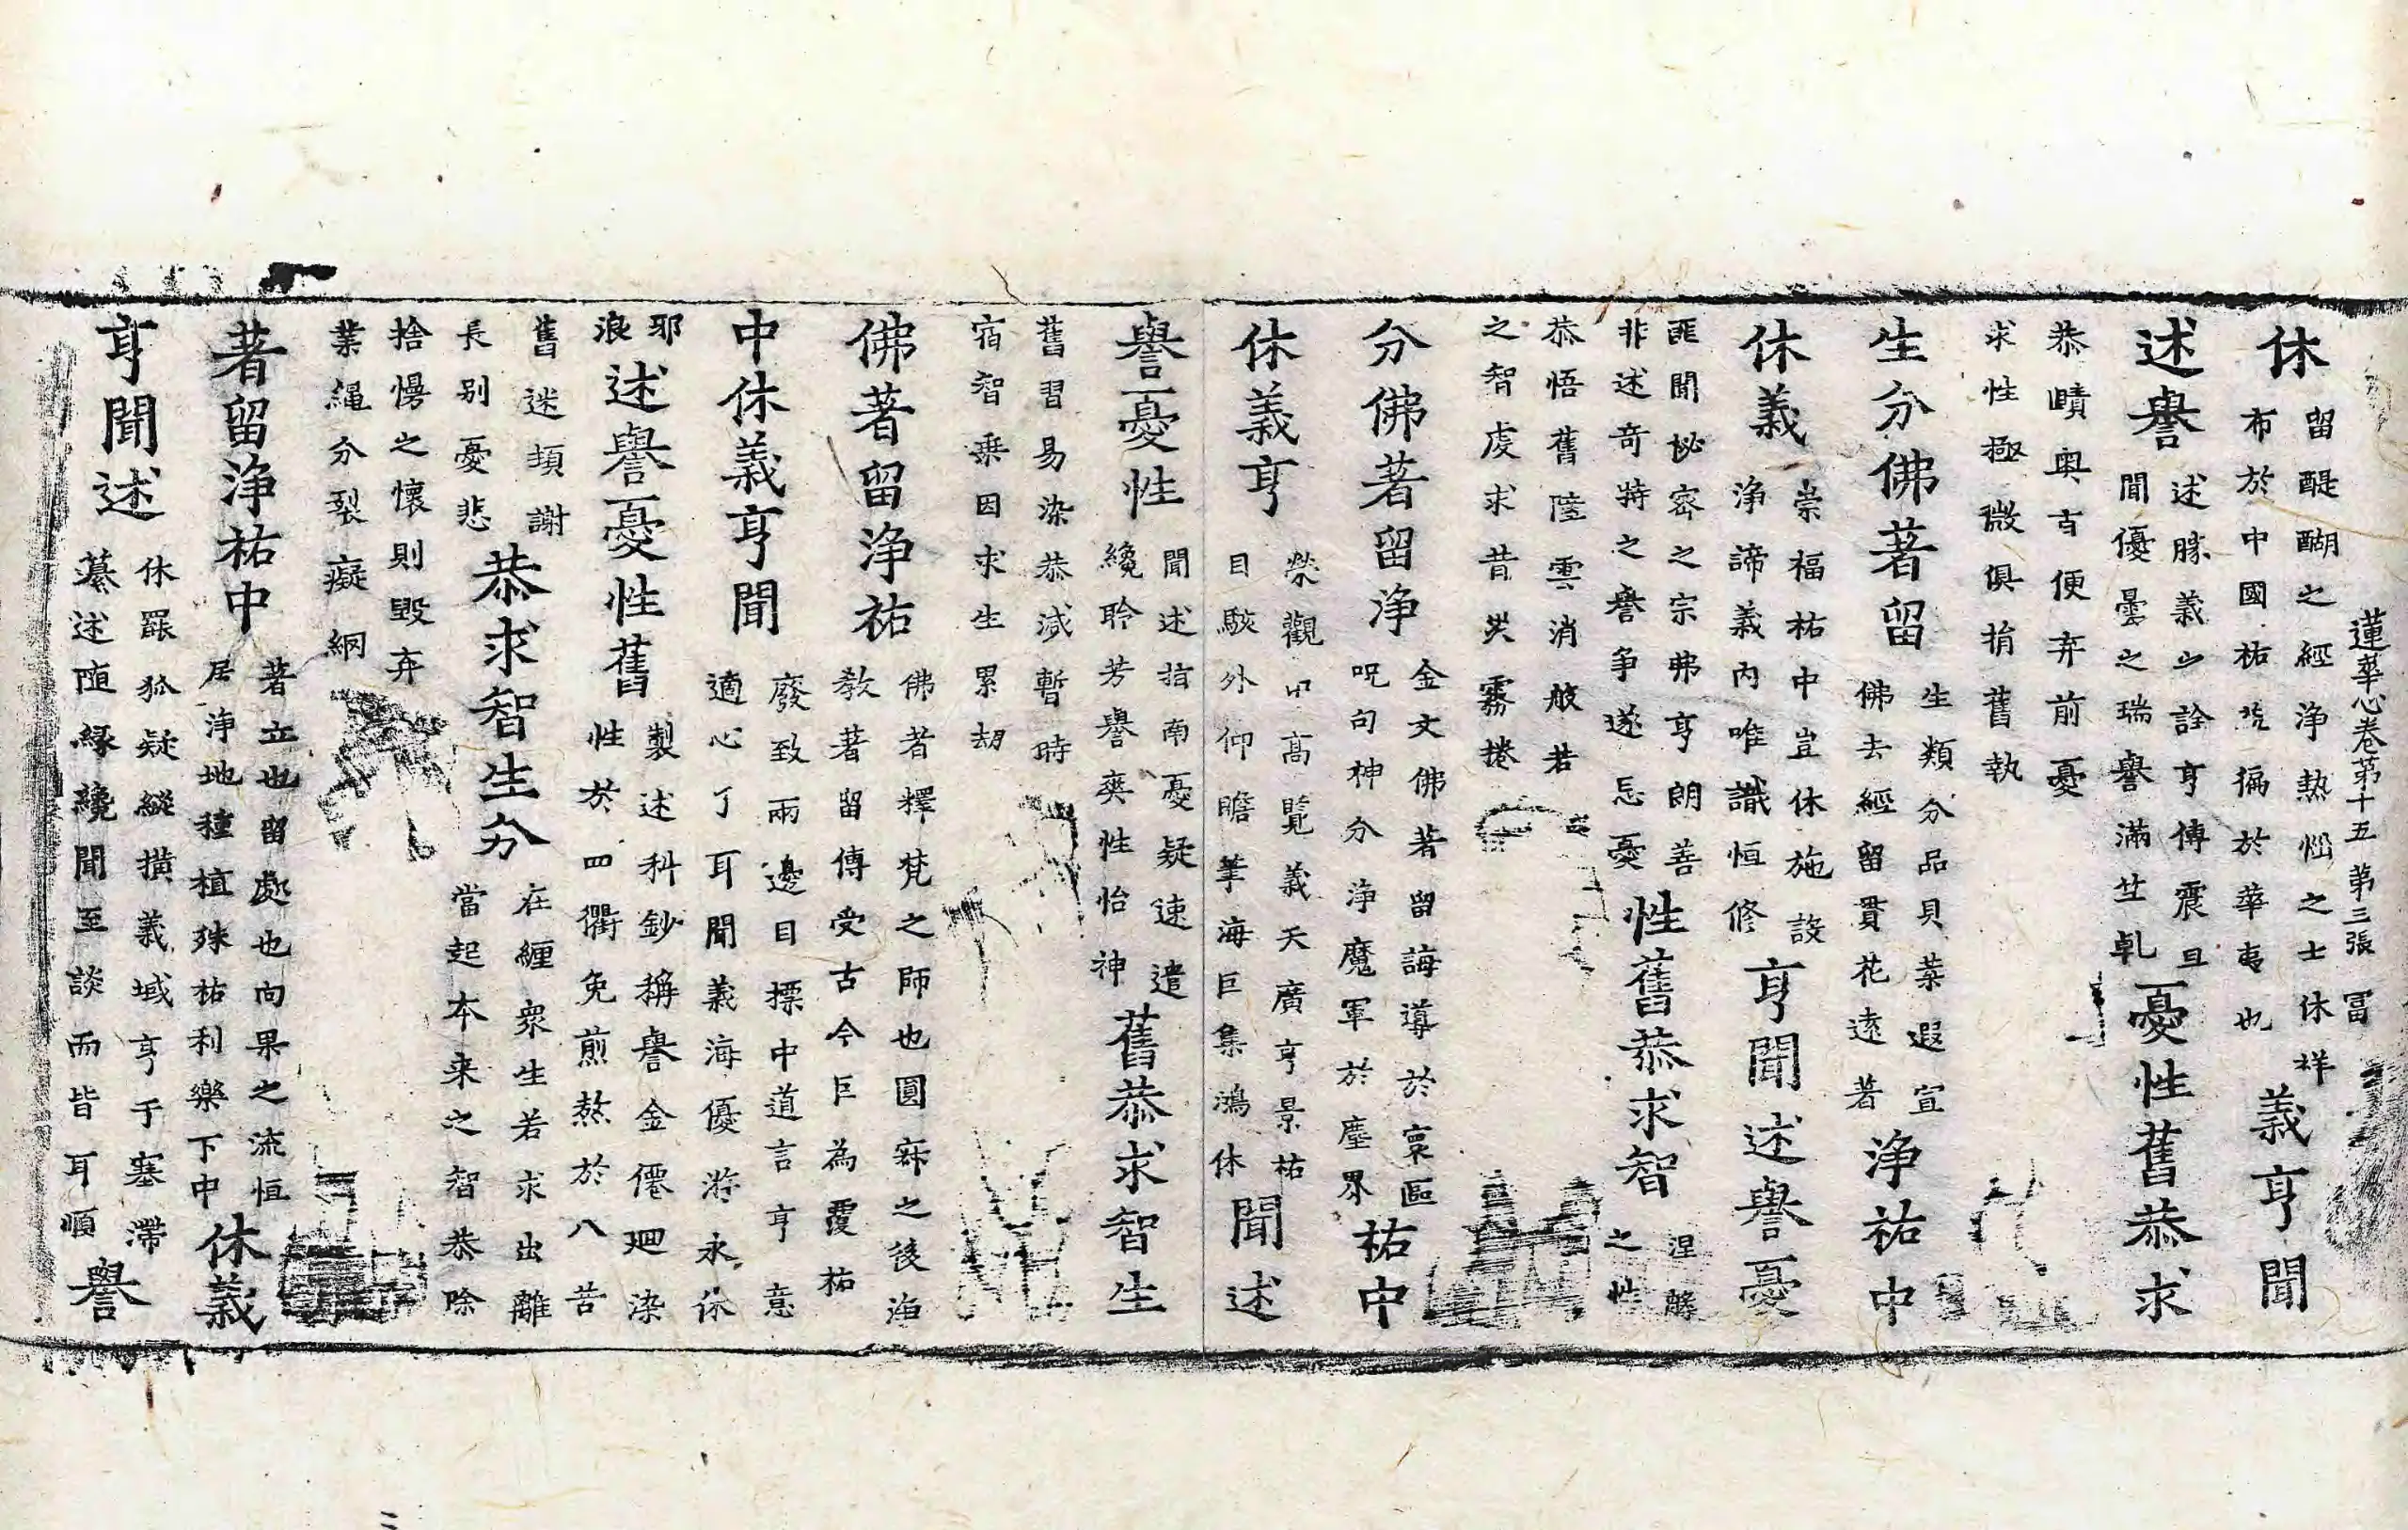 蓮華心卷第十五 第三張 冨
休
留醍醐之經淨熱惱之士休祥
布於中國祐旣徧於華夷也
義亨聞
述譽
述勝義以詮亨傳震旦
聞優曇之瑞譽滿竺乹
憂性舊恭求
恭賾奥旨便弃前憂
求性極微俱捐舊執
生分佛著留
生類分品貝葉遐宣
佛去經留貫花遠著
淨祐中
休義
崇福祐中豈休施設
淨諦義内唯識恒修
亨聞述譽憂
匪聞祕密之宗弗亨朗善
非述奇特之譽爭遂忘憂
性舊恭求智
涅槃
之性
恭悟舊陰雲消般若
之智虔求昔災霧捲
分佛著留淨
金文佛著留誨導於寰區
呪句神分淨魔軍於塵界
祐中
休義亨
榮觀中高覽義天廣亨景祐
目駭外仰瞻筆海巨集鴻休
聞述
譽憂性
聞述指南憂疑速遣
纔聆芳譽爽性怡神
舊恭求智生
舊習易染恭滅暫時
宿智乗因求生累劫
佛著留淨祐
佛者釋梵之師也圓寂之後海
教著留傳受古今巨為覆祐
中休義亨聞
廢致兩邊目摽中道言亨意
適心了耳聞義海優游永休
耶
浪
述譽憂性舊
製述科鈔稱譽金僊迴染
性於四衢免煎熬於八苦
舊迷頓謝
長别憂悲
恭求智生分
在纏衆生若求出離
當起本来之智恭除
捨慢之懷則毀弃
業繩分裂癡網
著留淨祐中
著立也留處也向果之流恒
居淨地種植殊祐利樂下中
休義
亨聞述
休罷狐疑縱撗義域亨于塞滯
纂述随緣纔聞至談而皆耳順
譽
二